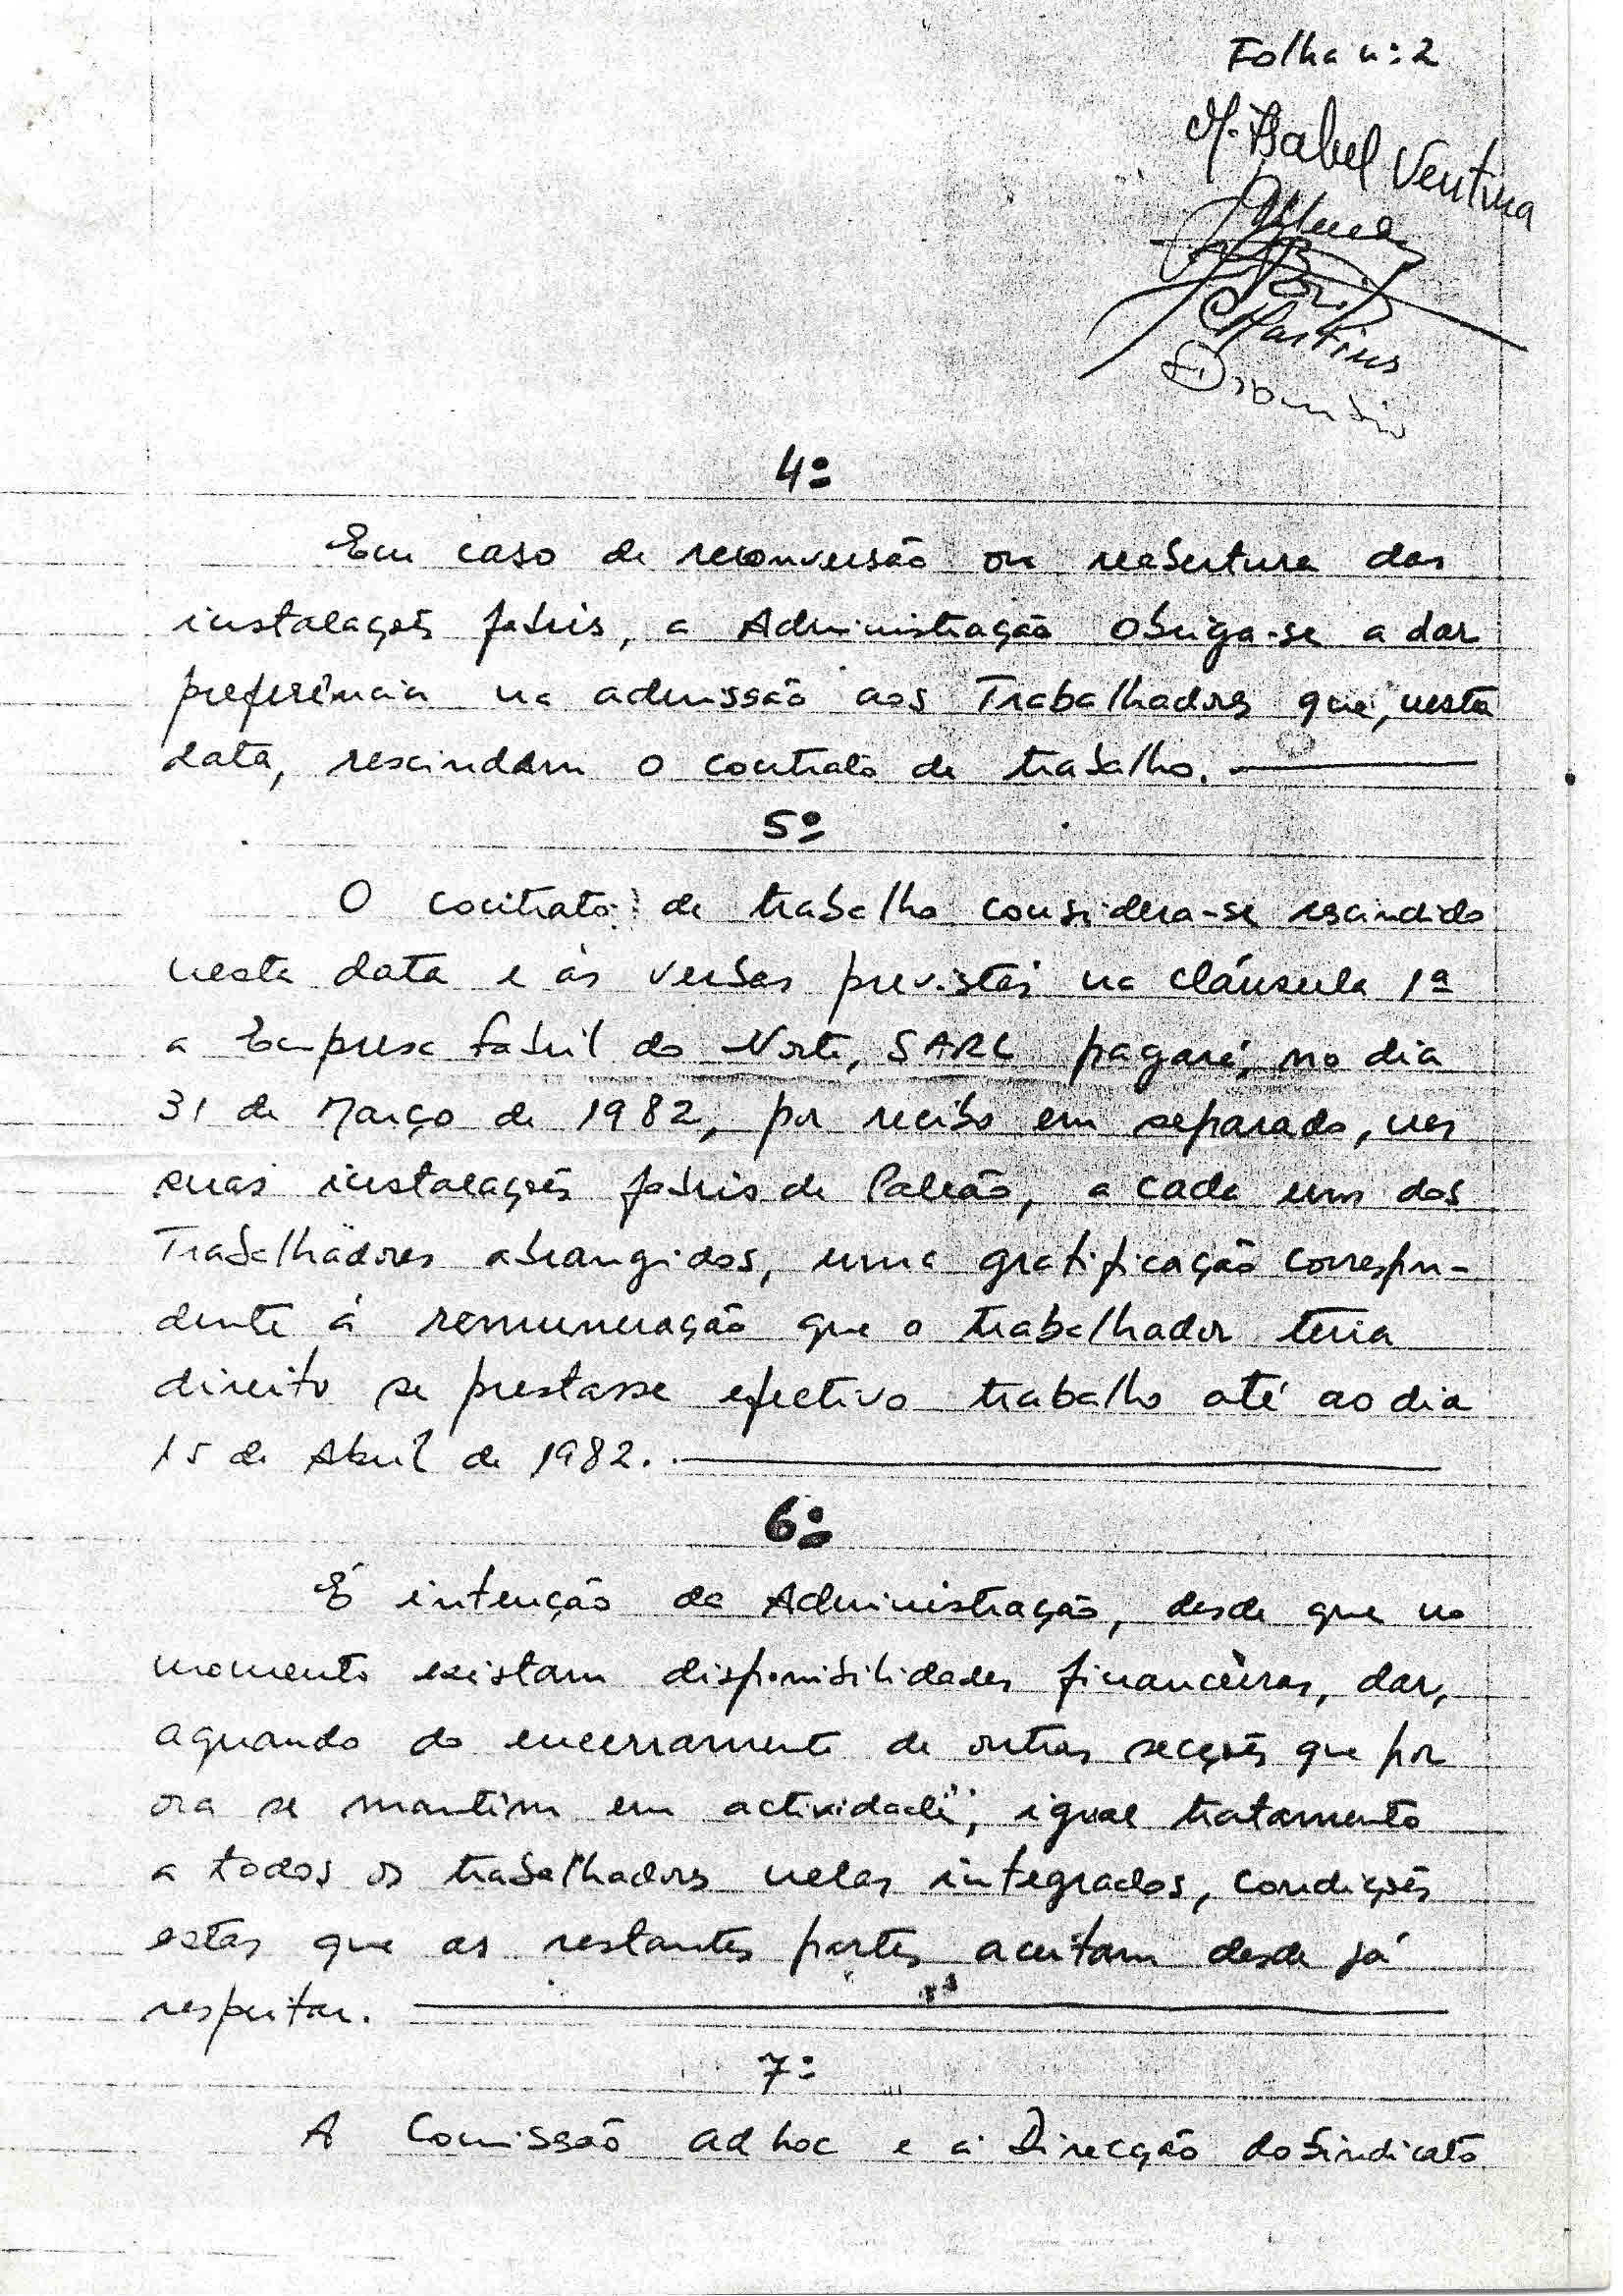 Folha nº 2
M. Isabel Ventura
Martins
4º
Em caso de reconversão ou reabertura das
instalações fabris, a Administração obriga-se a dar
preferência na admissão aos Trabalhadores que, nesta
data, rescindam o contrato de trabalho.
5º
O contrato de trabalho considera-se rescindido
nesta data e às verbas previstas na cláusula 1ª
a Empresa Fabril do Norte, SARL pagará, no dia
31 de Março de 1982, por recibo em separado, nas
suas instalações fabris de Paleão, a cada um dos
Trabalhadores abrangidos, uma gratificação correspon-
dente à remuneração que o trabalhador teria
direito se prestasse efectivo trabalho até ao dia
15 de Abril de 1982.
6º
É intenção da Administração, desde que no
momento existam disponibilidades financeiras, dar,
aquando do encerramento de outras secções que por
ora se mantêm em actividade, igual tratamento
a todos os trabalhadores nelas integrados, condições
estas que as restantes partes aceitam desde já
respeitar.
7º
A Comissão ad hoc e a Direcção do Sindicato